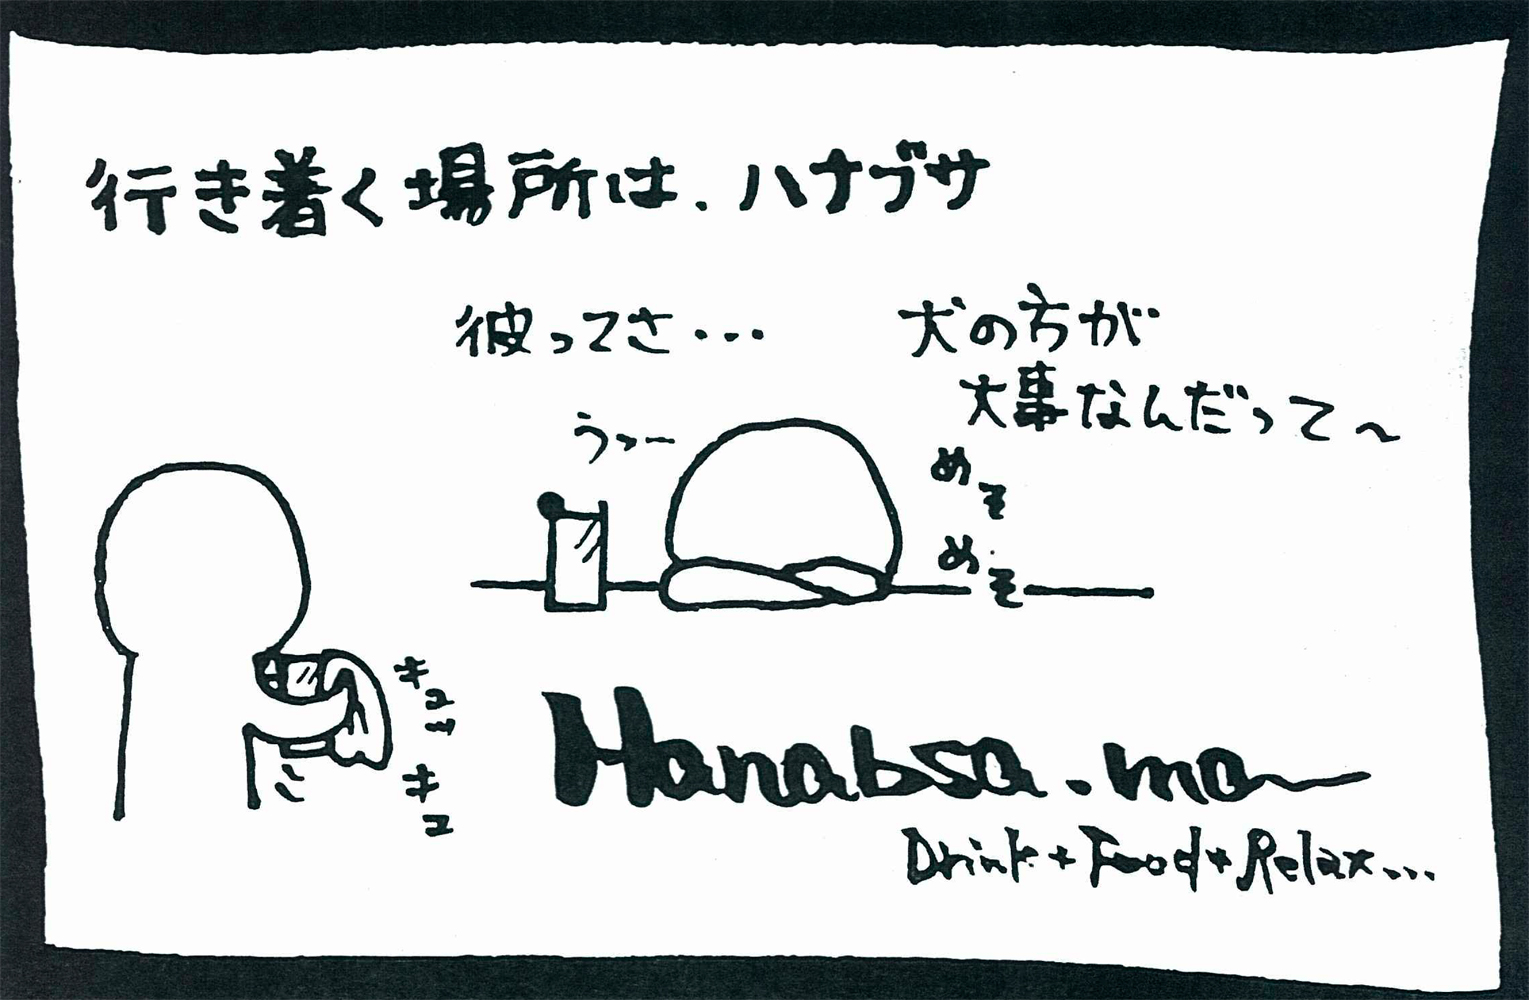 行き着く場所は.ハナブサ
彼ってさ・・・
犬の方が
大事なんだって〜
うっー
めそ
めそ
キュッ
キュ
Hanabsa.ma
Drink+Food+Relax...